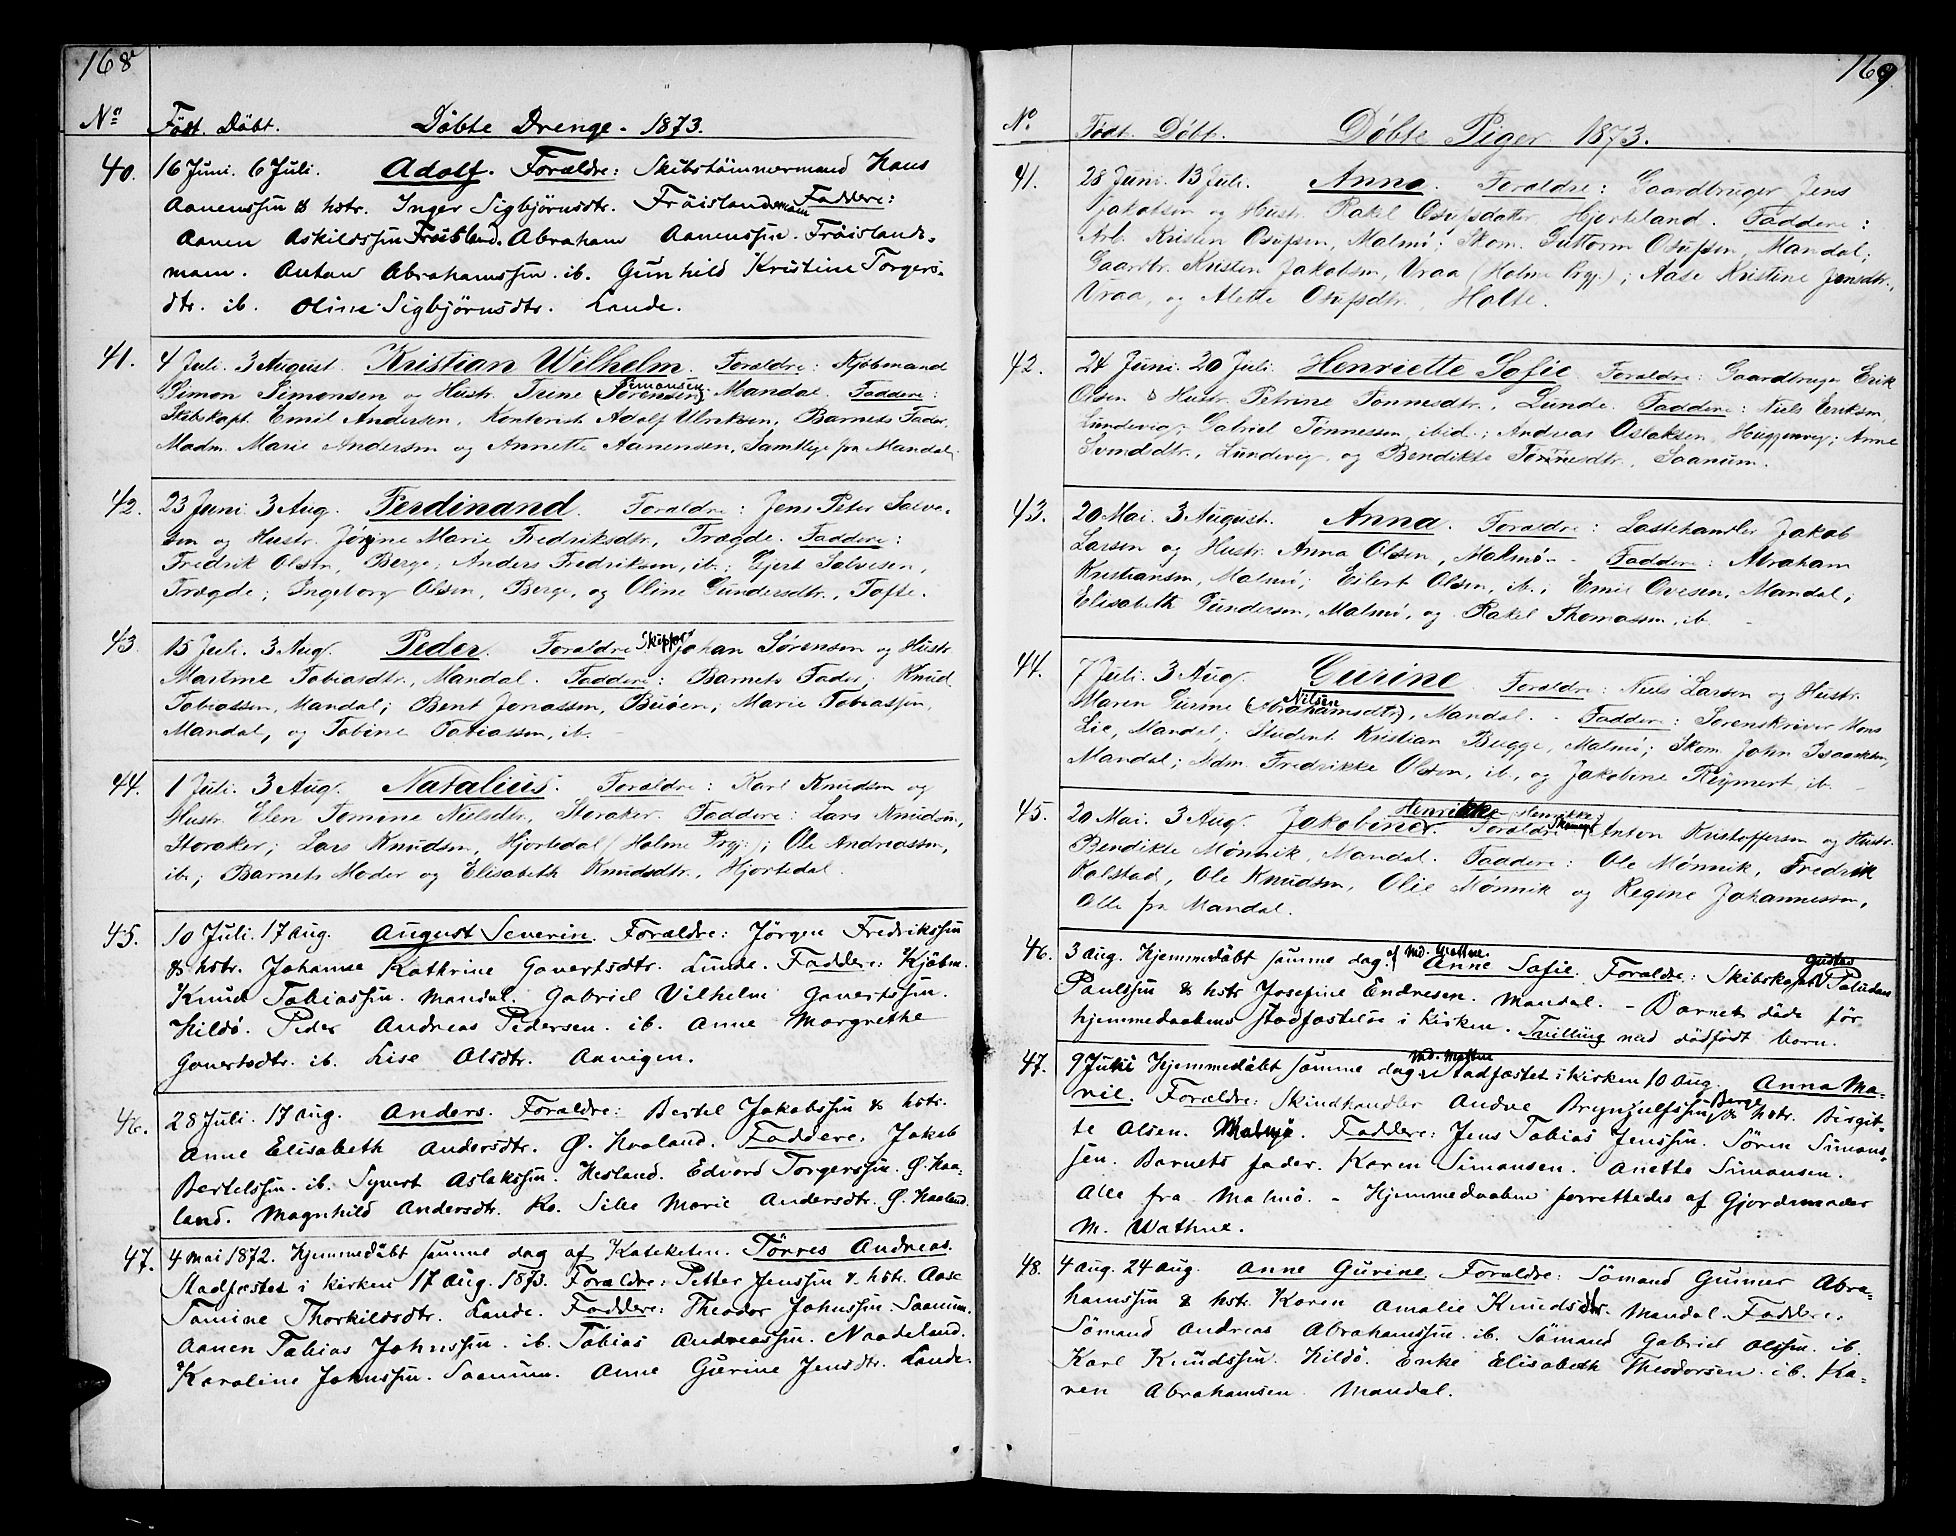 168
No Födt. Döbt. Döbte Drenge. 1873.
40. 16 Juni. 6 Juli. Adolf. Forældre: Skibstömmermand Hans
Aanenssøn & hstr. Inger Sigbjörnsdtr. Fröislandsmam Faddere:
Aanen Askildssøn Fröisland. Abraham Aanenssøn. Fröislands-
mam. Anton Abrahamssøn. ib. Gunhild Kristine Torgers-
dtr. ib. Oline Sigbjörnsdtr. Lande.
41. 4 Juli. 3 August. Kristian Wilhelm. Forældre: Kjøbmand
Simon Simonsen og Hustr. Trine (Sørensen) Simonsen. Mandal. Faddere:
Skibskapt. Emil Andersen, Kontorist Adolf Ulriksen, Barnets Fader,
Madm. Marie Andersen og Annette Aanensen, Samtlige fra Mandal.
42. 23 Juni. 3 Aug. Ferdinand. Forældre: Jens Peter Salve-
sen og Hustr. Jørgine Marie Fredriksdtr., Trægde. Faddere:
Fredrik Olsen, Berge; Anders Fredriksen, ib.; Gjert Salvesen,
Trægde; Ingeborg Olsen, Berge, og Oline Gundersdtr., Tofte.
43. 15 Juli. 3 Aug. Peder. Forældre Skipper Johan Sørensen og Hustr.
Martine Tobiasdtr., Mandal. Faddere: Barnets Fader; Knud
Tobiassen, Mandal; Bent Jonassen, Buøen; Marie Tobiassen,
Mandal, og Tobine Tobiassen, ib.
44. 1 Juli. 3 Aug. Natalius. Forældre: Karl Knudsen og
Hustr. Elen Tomine Nielsdtr., Storaker. Faddere: Lars Knudsen,
Storaker; Lars Knudsen, Hjortedal (Holme Prgj:); Ole Andreassen,
ib.; Barnets Moder og Elisabeth Knudsdtr., Hjortedal.
45. 10 Juli. 17 Aug. August Severin. Forældre: Jörgen Fredrikssøn
& hstr. Johanne Kathrine Govertsdtr. Lunde. Faddere: Kjöbm.
Knud Tobiassøn. Mandal. Gabriel Vilhelm Govertssøn.
Hildö. Peder Andreas Pedersen. ib. Anne Margrethe
Govertsdtr. ib. Lise Olsdtr. Aavigen.
46. 28 Juli. 17 Aug. Anders. Forældre: Bertel Jakobssøn & hstr.
Anne Elisabeth Andersdtr. Ø. Haaland. Faddere. Jakob
Bertelssøn. ib. Syvert Aslakssøn. Hesland. Edvard Torgerssøn. Ø. Haa-
land. Magnhild Andersdtr. Ro. Silie Marie Andersdtr. Ø. Haaland.
47. 4 Mai 1872. Hjemmedöbt samme dag af Kateketen. Törres Andreas.
Stadfæstet i kirken 17 Aug. 1873. Forældre: Petter Jenssøn & hstr. Aase
Tomine Thorkildsdtr. Lande. Faddere: Theodor Johnssøn. Saanum.
Aanen Tobias Johnssøn. ib. Tobias Andreassøn. Naadeland.
Karoline Johnssøn. Saanum. Anne Gurine Jensdtr. Lande.
169
No. Født. Døbt. Døbte Piger 1873.
41. 28 Juni. 13 Juli. Anna. Forældre: Gaardbruger Jens
Jakobsen og Hustr. Rakel Osufsdatter, Hjorteland. Faddere:
Arb. Kristen Osufsen, Malmø; Skom. Guttorm Osufsen, Mandal;
Gaardbr. Kristen Jakobsen, Vraa (Holme Prgj.); Aase Kristine Jensdtr.,
Vraa, og Alette Osufsdtr. Holte.
42. 24 Juni. 20 Juli. Henriette Sofie Forældre: Gaardbruger Erik
Olsen & Hustr. Petrine Tønnesdtr., Lunde. Faddere: Niels Eriksen,
Lundevig; Gabriel Tønnessen, ibid.; Andreas Oslaksen, ; Anne
Svendsdtr., Lundevig, og Bendikte Tønnesdtr., Saanum.
43. 20 Mai. 3 August. Anna. Forældre: Lastehandler Jakob
Larsen og Hustr. Anna Olsen, Malmø. Faddere: Abraham
Kristiansen, Malmø; Eilert Olsen, ib.; Emil Ovesen, Mandal;
Elisabeth Gundersen, Malmø, og Rakel Thomassen, ib.
44. 7 Juli. 3 Aug. Gurine Forældre: Niels Larsen og Hustr.
Maren Gurine (Abrahamsdtr) Nilsen, Mandal. Faddere: Sorenskriver Mons
Lie, Mandal; Student Kristian Bugge, Malmø; Skom. John Isaaksen,
Mandal; Mdm. Fredrikke Olsen, ib., og Jakobine Reymert, ib.
45. 20 Mai. 3 Aug. Jakobine Henrikke. Forældre: Anton Kristoffersen og Hustr.
Bendikte Mønnik, Mandal. Faddere: Ole Mønnik, Fredrik
Kalstad, Ole Knudsen, Olie Mønnik og Regine Johannessen,
Alle fra Mandal.
46. 3 Aug. Hjemmedöbt samme dag. af Md. Anne Sofie. Forældre: Skibskapt. Gustav Paludan
Paulssøn & hstr Josefine Endresen. Mandal. - Barnet döde för
hjemmedaabens stadfæstelse i kirken. Tvilling med dödfödt barn.
47. 9 Juni Hjemmedöbt samme dag Stadfæstet i kirken 10 Aug. Anna Ma-
vil. Forældre: Skindhandler Andre Brynjulfssøn Berge & hstr. Birgit-
te Olsen. Malmö. Faddere: Jens Tobias Jenssøn. Sören Simons-
sen. Barnets fader. Karen Simonsen. Anette Simonsen.
Alle fra Malmö. - Hjemmedaaben forrettedes af Gjordemoder
M. Wathne.
48. 4 Aug. 24 Aug. Anne Gurine. Forældre: Sömand Gunner Abra-
hamssøn & hstr. Karen Amalie Knudsdtr. Mandal. Faddere.
Sömand Andreas Abrahamssøn. ib. Sömand Gabriel Olssøn. ib.
Karl Knudssøn. Hildö. Enke Elisabeth Theodorsen. ib. Ka-
ren Abrahamsen. Mandal.